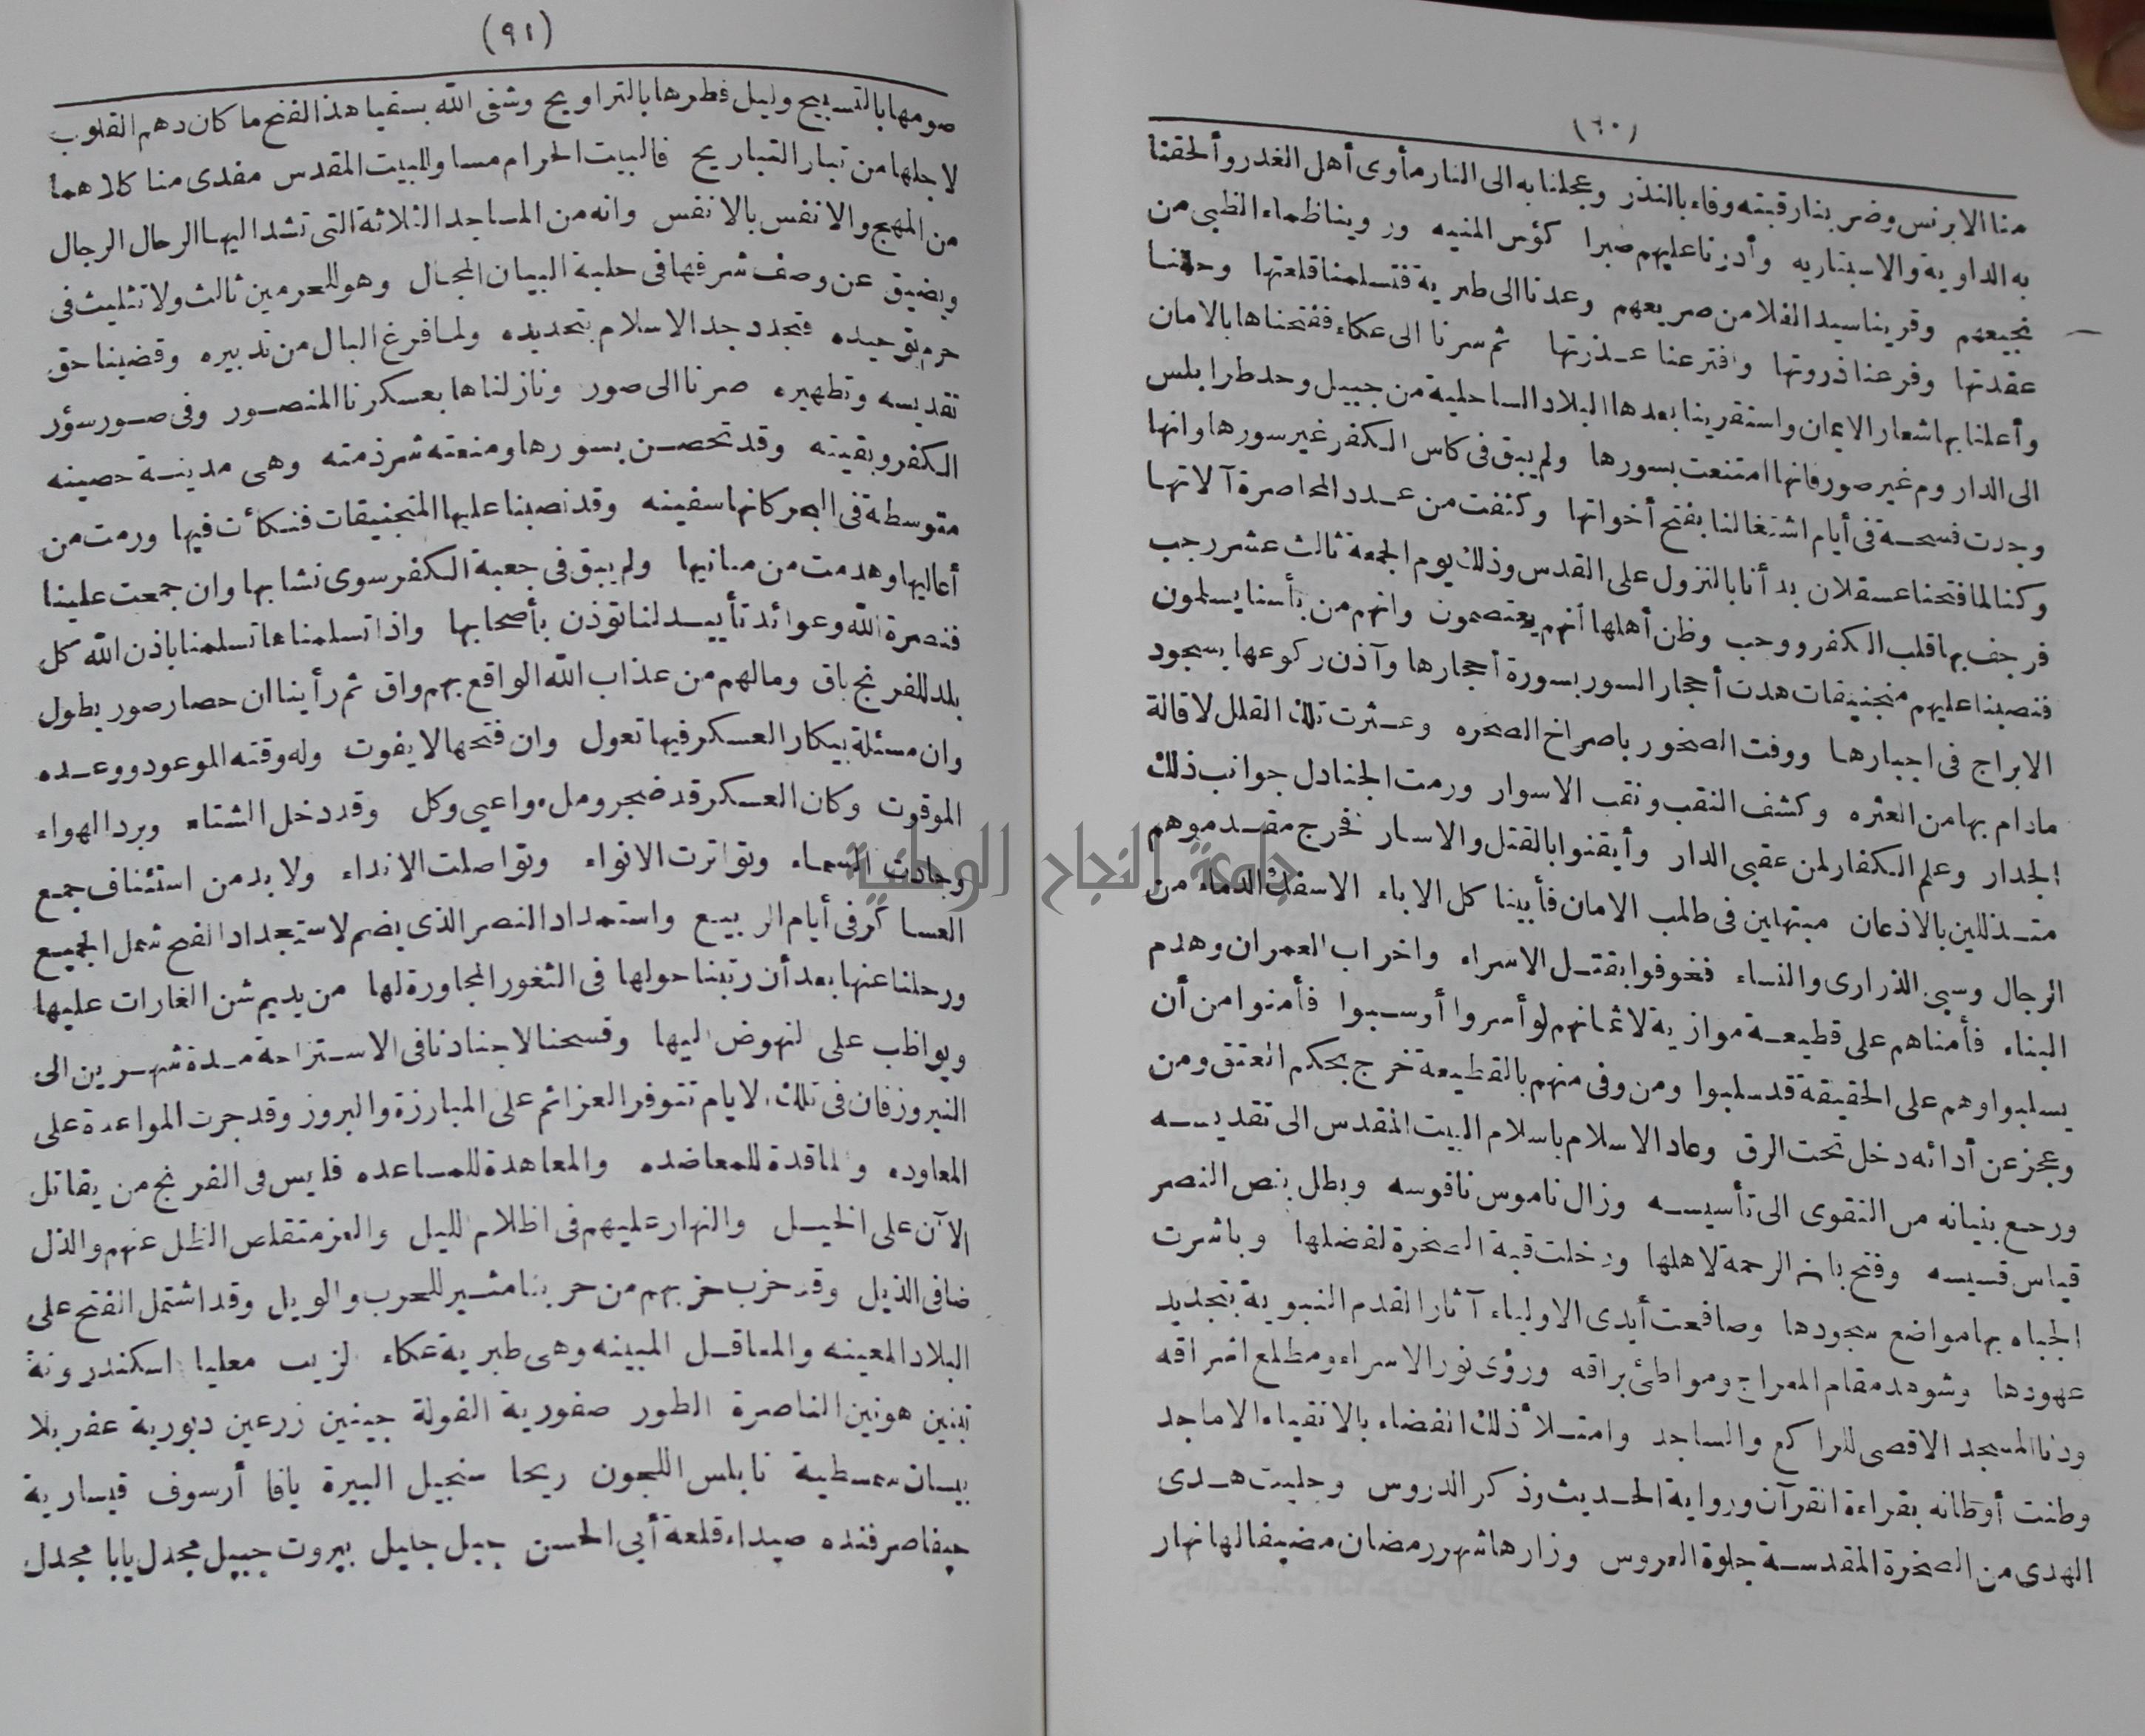 (٦٠)
منا الابرنس وضربنا رقبته وفاء بالنذر وعجلنا به الى النار مأوى أهل الغدر وألحقنا
به الداوية والاسبتاريه وأدرنا عليهم صبرا كؤس المنيه وروينا ظماء الظبى من
نجيعهم وقرينا سيد الفلا من صريعهم وعدنا الى طبرية فتسلمنا قلعتها وحللنا
عقدتها وفرعنا ذروتها وافترعنا عذرتها ثم سرنا الى عكاء ففتحناها بالامان
وأعلنا بها شعار الايمان واستقرينا بعدها البلاد الساحلية من جبيل وحد طرابلس
الى الداروم غير صور فانها امتنعت بسورها ولم يبق فى كاس الكفر غير سورها وانها
وجدت فسحة فى أيام اشتغالنا بفتح أخواتها وكثفت من عدد المحاصرة آلاتها
وكنا لما فتحنا عسقلان بدأنا بالنزول على القدس وذلك يوم الجمعة ثالث عشر رجب
فرجف بها قلب الكفر ووجب وظن أهلها أنهم يعتصمون وانهم من بأسنا يسلمون
فنصبنا عليهم منجنيقات هدت أحجار السور بسورة أحجارها وآذن ركوعها بسجود
الابراج فى اجبارها ووفت الصخور باصراخ الصخره وعثرت تلك القلل لاقالة
مادام بها من العثره وكشف النقب ونقب الاسوار ورمت الجنادل جوانب ذلك
الجدار وعلم الكفار لمن عقبى الدار وأيقنوا بالقتل والاسار فخرج مقدموهم
متذللين بالاذعان مبتهلين فى طلب الامان فأبينا كل الاباء الاسفك الدماء من
الرجال وسبى الذرارى والنساء فخوفوا بقتل الاسراء واخراب العمران وهدم
البناء فأمناهم على قطيعة موازية لاثمانهم لو أسروا أوسبوا فأمنوا من أن
يسلبوا وهم على الحقيقة قد سلبوا ومن وفى منهم بالقطيعة خرج بحكم العتق ومن
وعجز عن أدائه دخل تحت الرق وعاد الاسلام باسلام البيت المقدس الى تقديسه
ورجع بنيانه من التقوى الى تأسيسه وزال ناموس ناقوسه وبطل بنص النصر
قياس قسيسه وفتح باب الرحمة لاهلها ودخلت قبة الصخرة لفضلها وباشرت
الجباه بها مواضع سجودها وصافحت أيدى الاولياء آثار القدم النبوية بتجديد
عهودها وشوهد مقام المعراج ومواطئ براقه ورؤى نور الاسراء ومطلع اشراقه
ودنا المسجد الاقصى للراكع والساجد وامتلأ ذلك الفضاء بالاتقياء الاماجد
وطنت أوطانه بقراءة القرآن ورواية الحديث وذكر الدروس وجليت هدى
الهدى من الصخرة المقدسة جلوة العروس وزارها شهر رمضان مضيفا لها نهار
(٩١)
صومها بالتسبيح وليل فطرها بالتراويح وشفى الله بسقيا هذا الفتح ما كان دهم القلوب
لاجلها من تبار التباريح فالبيت الحرام مساو للبيت المقدس مفدى منا كلاهما
من المهج والانفس بالانفس وانه من المساجد الثلاثة التى تشد اليها الرحال الرجال
ويضيق عن وصف شرفها فى حلبة البيان المجال وهو للحرمين ثالث ولا تثليث فى
حرم توحيده فتجدد جد الاسلام بتجديده ولما فرغ البال من تدبيره وقضينا حق
تقديسه وتطهيره صرنا الى صور ونازلناها بعسكرنا المنصور وفى صور سؤر
الكفر وبقيته وقد تحصن بسورها ومنعته شرذمته وهى مدينة حصينه
متوسطة فى البحر كانها سفينه وقد نصبنا عليها المنجنيقات فنكأت فيها ورمت من
أعاليها وهدمت من مبانيها ولم يبق فى جعبة الكفر سوى نشابها وان جمعت علينا
فنصرة الله وعوائد تأييد لنا تؤذن بأصحابها واذا تسلمناها تسلمنا باذن الله كل
بلد للفرنج باق ومالهم من عذاب الله الواقع بهم واق ثم رأينا ان حصار صور يطول
وان مسئلة بيكار العسكر فيها تعول وان فتحها لا يفوت وله وقته الموعود ووعده
الموقوت وكان العسكر قد ضجر ومل واعيى وكل وقد دخل الشتاء وبرد الهواء
وجادت السماء وتواترت الانواء وتواصلت الانداء ولابد من استئناف جمع
العساكر فى أيام الربيع واستمداد النصر الذى يضم لاستجداد الفتح شمل الجميع
ورحلنا عنها بعد أن رتبنا حولها فى الثغور المجاورة لها من يديم شن الغارات عليها
ويواظب على لنهوض اليها وفسحنا لاجنادنا فى الاستراحة مدة شهرين الى
النيروز فان فى تلك الايام تتوفر العزائم على المبارزة والبروز وقد جرت المواعدة على
المعاوده والمعاقدة للمعاضده والمعاهدة للمساعده فليس فى الفرنج من يقاتل
الآن على الخيل والنهار عليهم فى اظلام الليل والعز متقلص الظل عنهم والذل
ضافى الذيل وقد خرب حزبهم من حربنا مشير للحرب والويل وقد اشتمل الفتح على
البلاد المعينه والمعاقل المبينه وهى طبرية عكاء لزيب معليا اسكندرونة
تبنين هونين الناصرة الطور صفورية الفولة جينين زرعين دبورية عفربلا
بيسان سمسطية نابلس اللجون ريحا سنجيل البيرة يافا أرسوف قيسارية
حيفا صرفنده صيداء قلعة أبى الحسن جبل جليل بيروت جبيل مجدل يابا مجدل
جامعة النجاح الوطنية